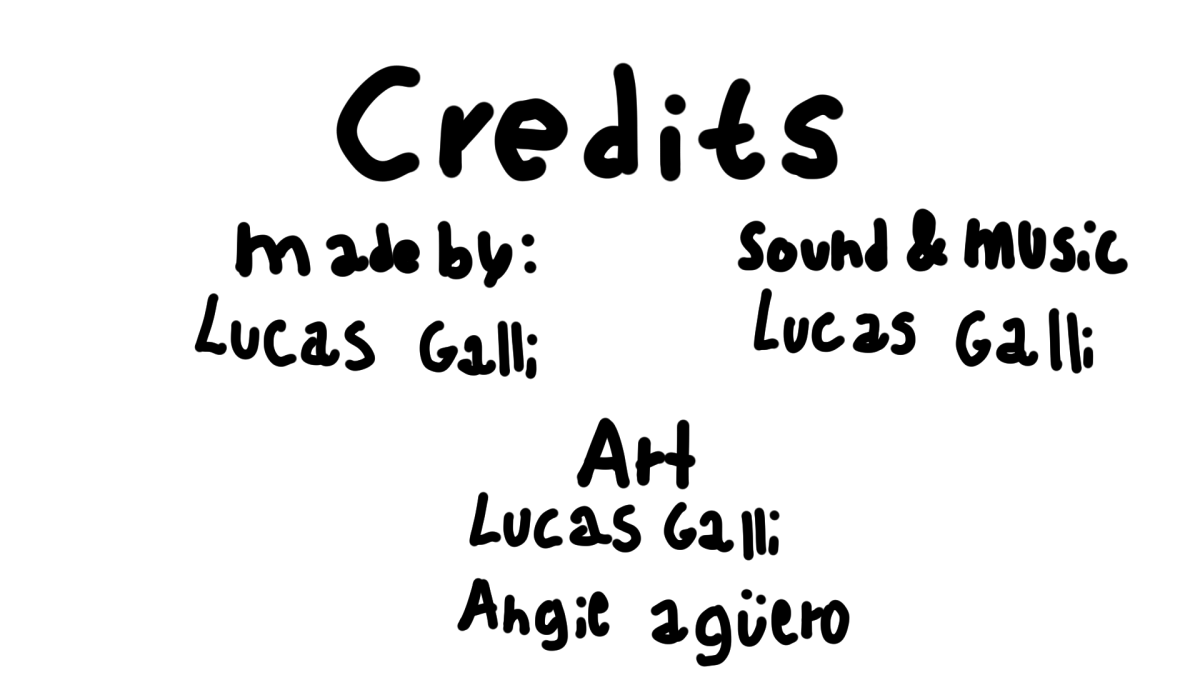 Credits
made by:
Lucas Galli
Sound & Music
Lucas Galli
Art
Lucas Galli
Angie agüero